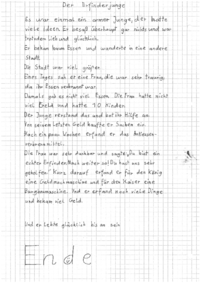 Der Erfinderjunge
Es war einmal ein armer Junge, der hatte
viele Ideen. Er besaß überhaupt gar nichts und war
trotzdem lieb und glücklich.
Er bekam kaum Essen und wanderte in eine andere
Stadt.
Die Stadt war viel größer.
Eines Tages sah er eine Frau, die war sehr traurig,
da ihr Essen verbrannt war.
Damals gab es nicht viel Essen. Die Frau hatte nicht
viel Geld und hatte 10 Kinder.
Der Junge verstand das und bot ihr Hilfe an.
Von seinem letzten Geld kaufte er Sachen ein.
Nach ein paar Wochen erfand er das
Die Frau war sehr dankbar und sagte „Du bist ein
echter Erfinder. Mach weiter so! Du hast uns sehr
geholfen! Kurz darauf erfand er für den König
eine Geldmachmaschine und für den Kaiser eine
Und er erfand noch viele Dinge
und bekam viel Geld.
Und er lebte glücklich bis an sein
Ende